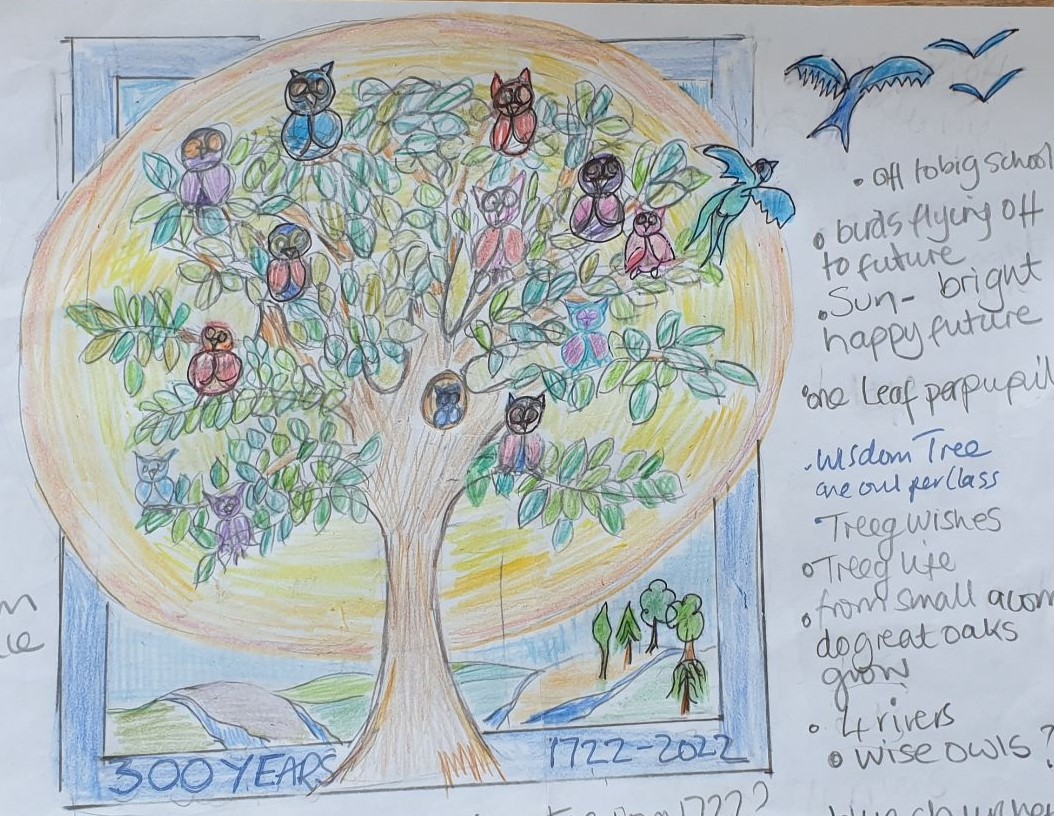 • off to big school
• birds flying off
to future
• Sun- bright
happy future
• one Leaf per pupil
• Wisdom Tree
one owl per class
• Tree of Wishes
• Tree of life
• from small acorn
do great oaks
grow
• 4 rivers
• wise owls ?
300 YEARS
1722-2022
1722?